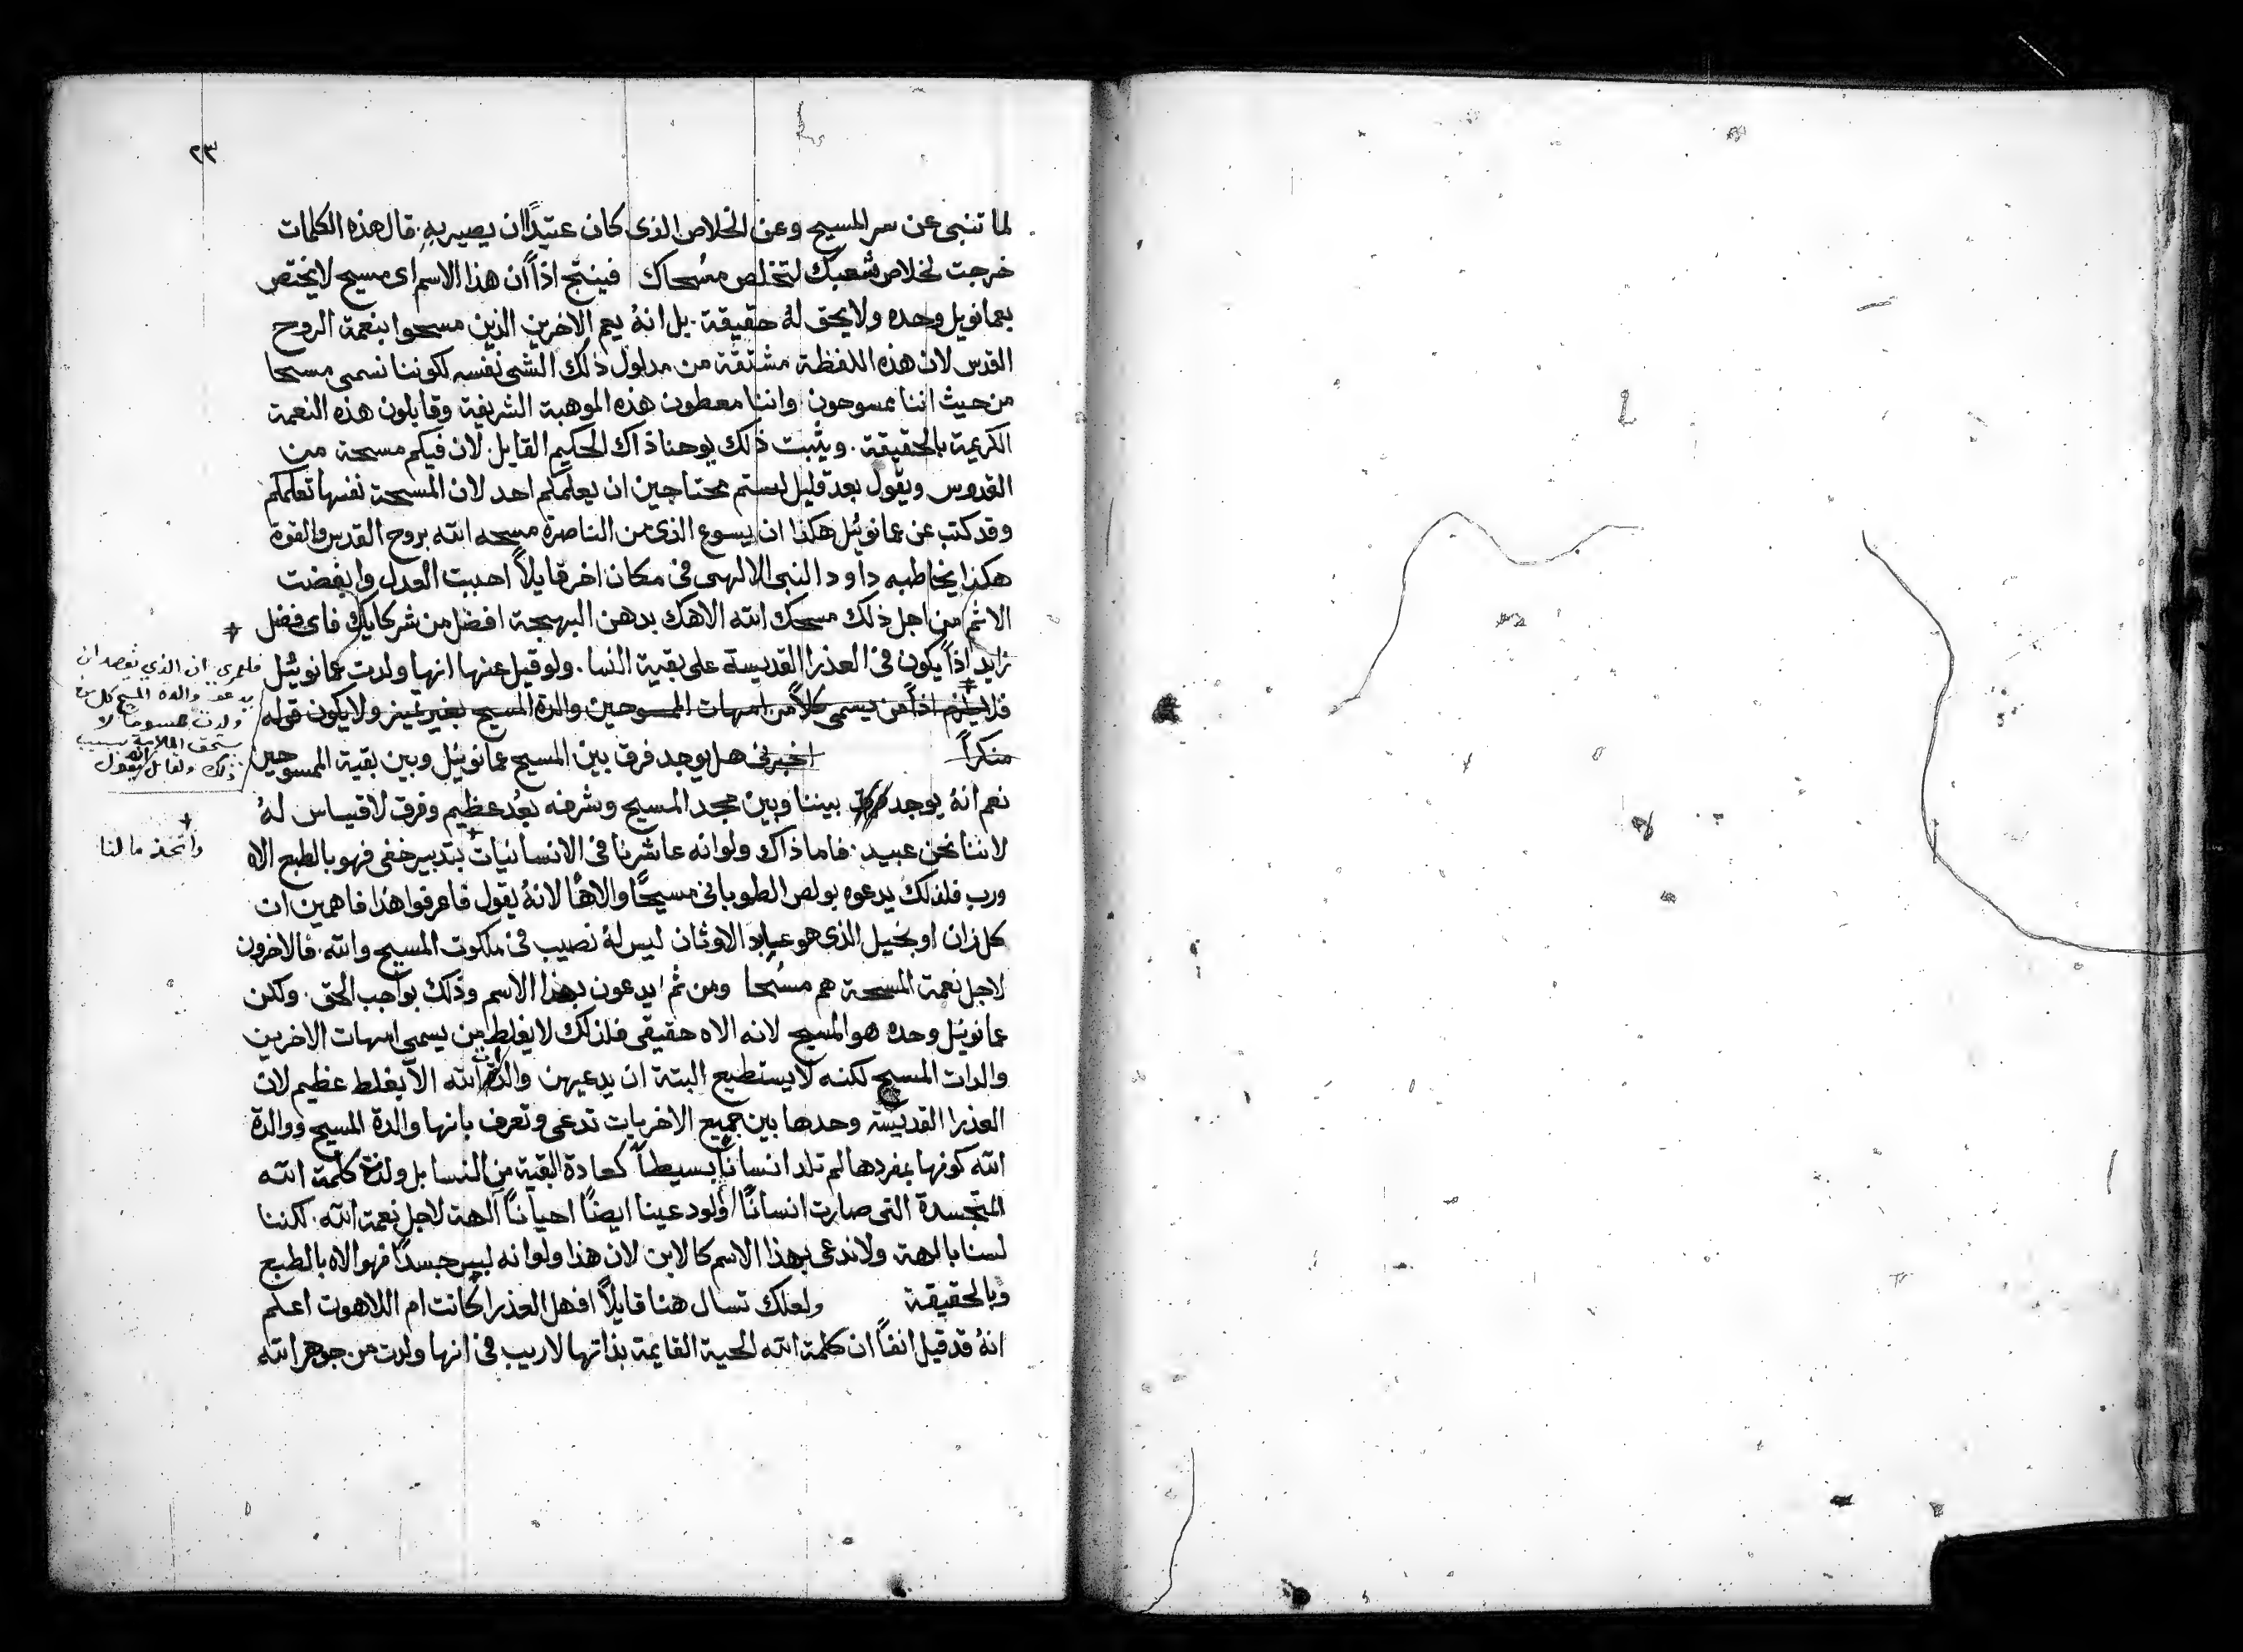 ٢٣
لما تنبى عن سر المسيح وعن الخلاص الذى كان عتيدًا ان يصير به. قال هذه الكلمات
خرجت لخلاص شعبك لتخلص مسُحاك فينتج اذاً ان هذا الاسم اى مسيح لا يختص
بعمانويل وحده ولا يحق لهُ حقيقة. بل انهُ يعم الاخرين الذين مسحوا بنعمة الروح
القدس لان هذه اللفظة مشتقة من مدلول ذلك الشى نفسه لكوننا نسمى مسحا
من حيث اننا ممسوحون واننا معطون هذه الموهبة الشريفة وقابلون هذه النعمة
الكريمة بالحقيقة. ويثبت ذلك يوحنا ذاك الحكيم القايل. لان فيكم مسحة من
القدوس ويقول بعد قليل لستم محتاجين ان يعلمكم احد لان المسحة نفسها تعلمكم
وقد كتب عن عمانوئيل هكذا ان يسوع الذى من الناصرة مسحه الله بروح القدس والقوة
هكذا يخاطبه داود النبى الالهى فى مكان اخر قايلاً احببت العدل وابغضت
الاثم من اجل ذلك مسحك الله الاهك بدهن البهجة افضل من شركايك فاى فضل
زايد اذاً يكون فى العذرا القديسة على بقية النسا. ولو قيل عنها انها ولدت عمانوئيل
فلعمرى ان الذي يقصد ان
يدعو والدة المسيح كل من
ولدت ممسوحاً لا
يستحق الملامة بسبب
ذلك ولقايل انه يقول
فلا يلزم اذاً من يسمى كلاً من امهات الممسوحين والدة المسيح بغير تمييز ولا يكون قوله
منكراً اخبرنى هل يوجد فرق بين المسيح عمانوئيل وبين بقية الممسوحين
نعم انهُ يوجد بيننا وبين مجد المسيح وشرفه بعُد عظيم وفرق لا قياس لهُ
لاننا نحن عبيد. فاما ذاك ولو انه عاشرنا فى الانسانيات بتدبير خفى فهو بالطبع الاه
واتخذ ما لنا
ورب فلذلك يدعوه بولص الطوبانى مسيحًا والاهًا لانهُ يقول فاعرفوا هذا فاهمين ان
كل زان او بخيل الذى هو عباد الاوثان ليس لهُ نصيب فى ملكوت المسيح والله. فالاخرون
لاجل نعمة المسحة هم مسُحا ومن ثم يدعون بهذا الاسم وذلك بواجب الحق. ولكن
عمانوئيل وحده هو المسيح لانه الاه حقيقى فلذلك لا يغلط من يسمى امهات الاخرين
والدات المسيح لكنه لا يستطيع البتة ان يدعيهن والدات الله الا بغلط عظيم لان
العذرا القديسة وحدها بين جميع الاخريات تدعى وتعرف بانها والدة المسيح ووالدة
الله كونها بمفردها لم تلد انسانًا بسيطاً كعادة البقية من النسا بل ولدة كلمة الله
المتجسدة التى صارت انسانًا اولو دعينا ايضًا احيانًا آلهة لاجل نعمة الله. لكننا
لسنا بالهة ولا ندعى بهذا الاسم كالابن لان هذا ولو انه لبس جسدًا فهو الاه بالطبع
وبالحقيقة ولعلك تسال هنا قايلاً افهل العذرا كانت ام اللاهوت اعلم
انهُ قد قيل انفًا ان كلمة الله الحية القايمة بذاتها لا ريب فى انها ولدت من جوهر الله